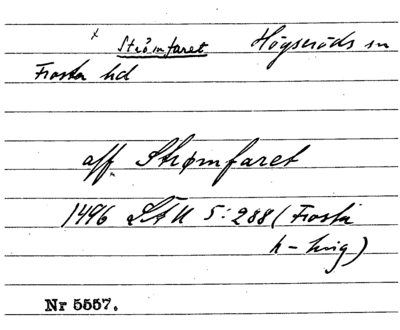 x Strömfaret Högseröds sn
Frosta hd
aff Strømfaret
1496 STAU 5:288 (Frosta
h-
Nr 5557.